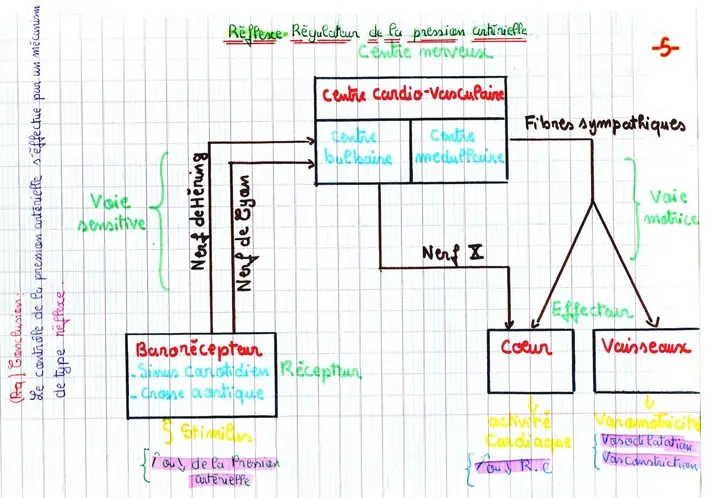 Réflexe-Régulateur de la pression artérielle
-5-
Centre nerveux
Centre Cardio-Vasculaire
Centre
bulbaire
Centre
medullaire
Fibres sympathiques
Voie
sensitive
Nerf de Héring
Nerf de Cyan
Nerf X
Voie
motrice
Effecteur
Barorécepteur
- Sinus Carotidien
- Crosse aortique
Récepteur
Coeur
Vaisseaux
Stimilus
↑ ou ↓ de la Pression
artérielle
activité
Cardiaque
↑ ou ↓ R.C
Vasomotricité
Vasodilatation
VasConstriction
(Rq) Conclusion:
Le contrôle de la pression artérielle s'éffectue par un mécanisme
de type réflexe.